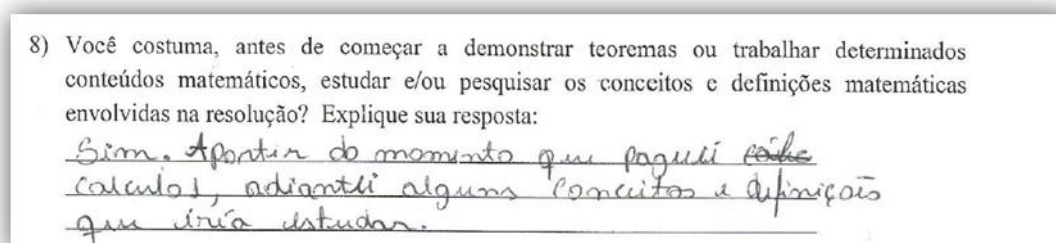 8) Você costuma, antes de começar a demonstrar teoremas ou trabalhar determinados
conteúdos matemáticos, estudar e/ou pesquisar os conceitos e definições matemáticas
envolvidas na resolução? Explique sua resposta:
Sim. Apartir do momento que paguei
calculo 1, adiantei alguns conceitos e definiçois
que iria estudar.